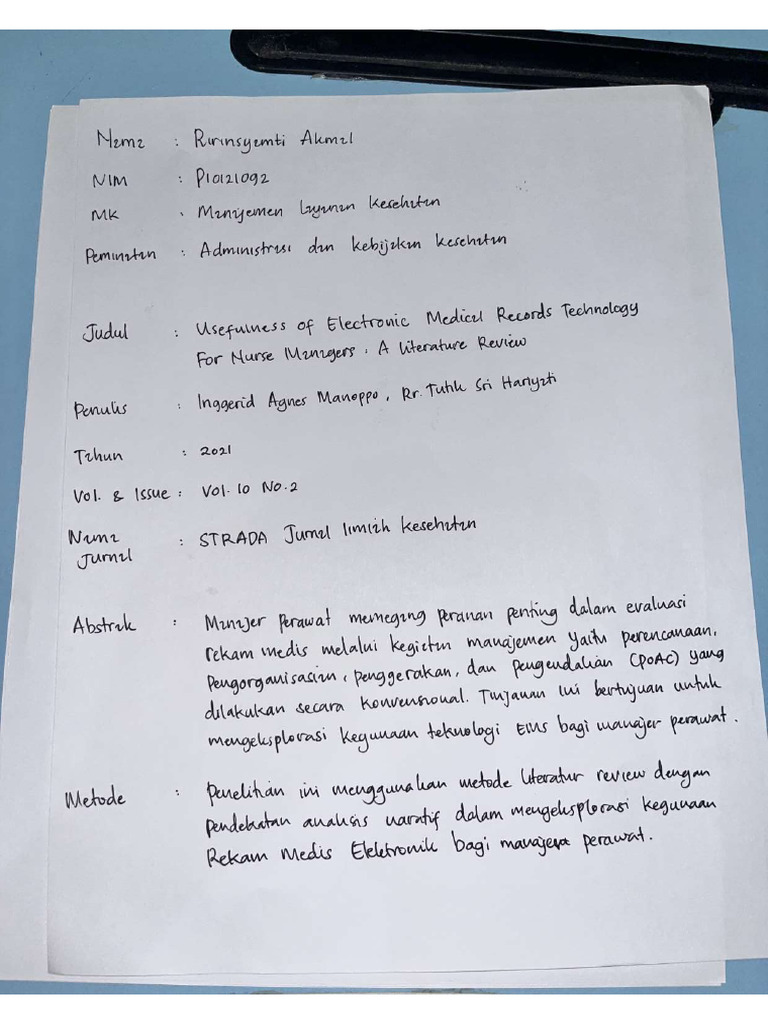 Nama : Ririnsyamti Akmal
NIM : P10121092
MK : Manajemen Layanan Kesehatan
Peminatan : Administrasi dan Kebijakan Kesehatan
Judul : Usefulness of Electronic Medical Records Technology
For Nurse Managers : A Literature Review
Penulis : Inggerid Agnes Manoppo, Rr. Tutik Sri Hariyati
Tahun : 2021
Vol. & Issue : Vol. 10 No. 2
Nama : STRADA Jurnal Ilmiah Kesehatan
Jurnal
Abstrak : Manajer perawat memegang peranan penting dalam evaluasi
rekam medis melalui kegiatan manajemen yaitu perencanaan,
pengorganisasian, penggerakan, dan pengendalian (POAC) yang
dilakukan secara konvensional. Tinjauan ini bertujuan untuk
mengeksplorasi kegunaan teknologi EMS bagi manajer perawat.
Metode : Penelitian ini menggunakan metode literatur review dengan
pendekatan analisis naratif dalam mengeksplorasi kegunaan
Rekam Medis Elektronik bagi manajer perawat.